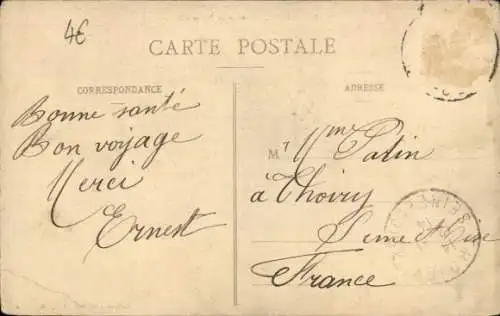 4€
CARTE POSTALE
CORRESPONDANCE
ADRESSE
Bonne santé
Bon voyage
Merci
Ernest
M
Mme Patin
à Thoiry
Seine et Oise
France